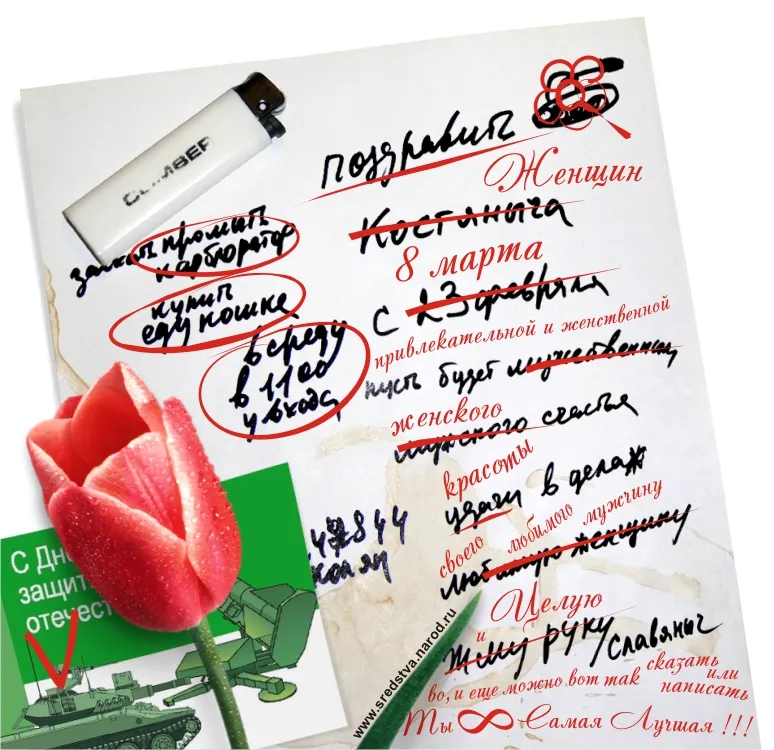 CLIMBER
поздравить
Женщин
Костяныча
8 марта
с 23 февраля
привлекательной и женственной
пусть будет мужественным
женского
мужского счастья
красоты
удачи в делах
своего любимого мужчину
любимую женщину
и Целую
жму руку славяныч
во, и еще можно вот так сказать или написать
Ты ∞ Самая Лучшая !!!
промыть
карбюратор
купить
еду кошке
в среду
в 1100
у входа
С Дн
защит
отечест
www.sredstva.narod.ru